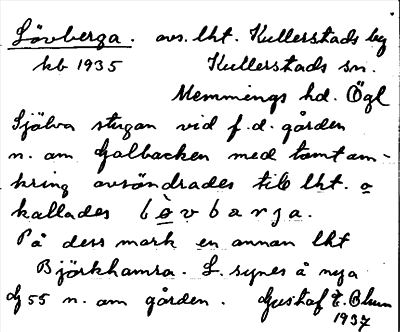 Lövberga. avs. lht. Kullerstads by
kb 1935 Kullerstads sn.
Memmings hd. Ögl
Själva stugan vid f.d. gården
n. om Galbacken med tomt om-
kring avsöndrades till lht. o
kallades lòvbarja.
På dess mark en annan lht
Björkhamra. L. synes å nya
G 55 n. om gården. Gustaf T. Blum
1937